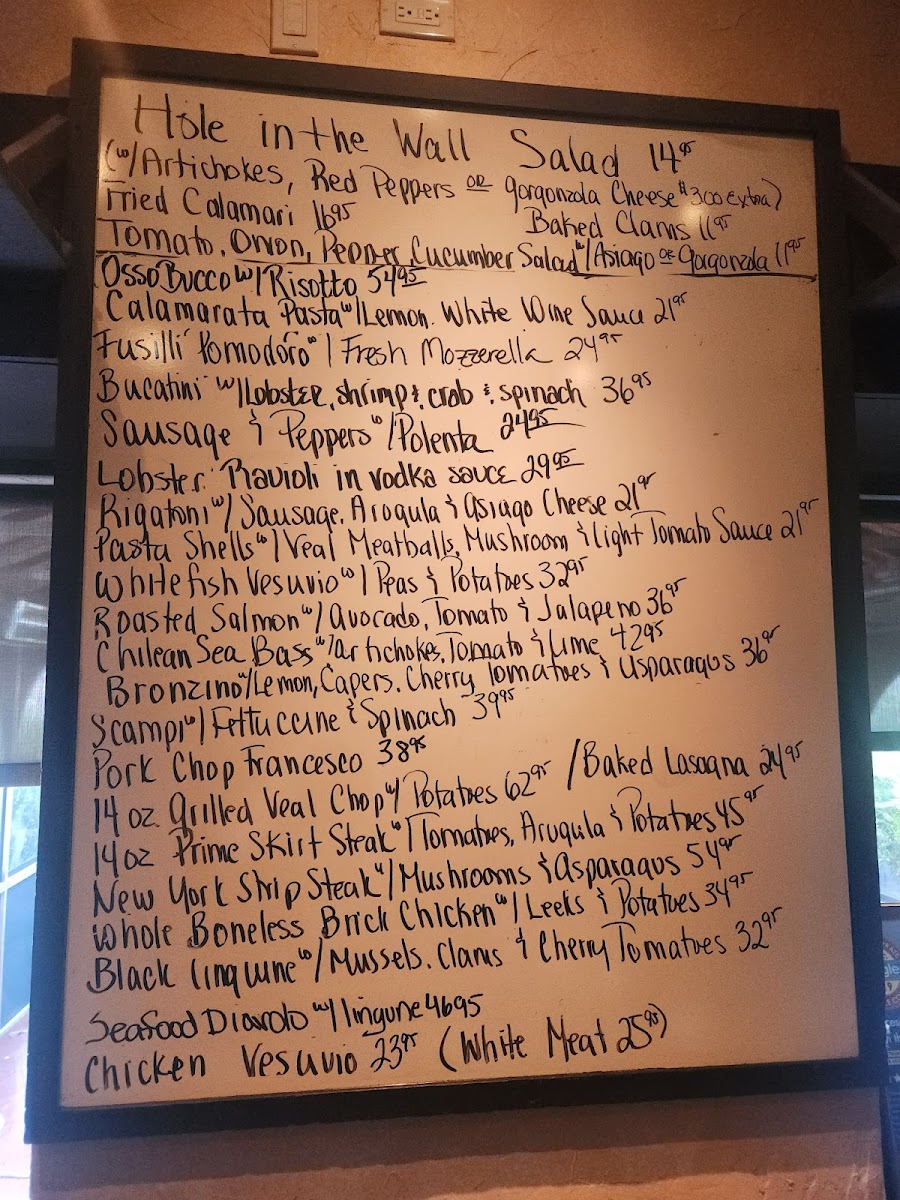 Hole in the Wall Salad 14⁹⁵
(w/Artichokes, Red Peppers OR gorgonzola Cheese $3.00 extra)
Fried Calamari 16⁹⁵ Baked Clams 11⁹⁵
Tomato, Onion, Pepper, Cucumber Salad w/Asiago OR Gorgonzola 11⁹⁵
Osso Bucco w/Risotto 54⁹⁵
Calamarata Pasta w/Lemon. White Wine Sauce 21⁹⁵
Fusilli Pomodoro w/Fresh Mozzerella 24⁹⁵
Bucatini w/Lobster, shrimp & crab & spinach 36⁹⁵
Sausage & Peppers w/Polenta 24⁹⁵
Lobster Ravioli in vodka sauce 29⁹⁵
Rigatoni w/Sausage, Arugula & asiago Cheese 21⁹⁵
Pasta Shells w/Veal Meatballs, Mushroom & light Tomato Sauce 21⁹⁵
Whitefish Vesuvio w/Peas & Potatoes 32⁹⁵
Roasted Salmon w/avocado, Tomato & Jalapeno 36⁹⁵
Chilean Sea Bass w/artichokes, Tomato & Lime 42⁹⁵
Bronzino w/Lemon, Capers, Cherry Tomatoes & asparagus 36⁹⁵
Scampi w/Fettuccine & Spinach 39⁹⁵
Pork Chop Francesco 38⁹⁵
14 oz. Grilled Veal Chop w/Potatoes 62⁹⁵ /Baked Lasagna 24⁹⁵
14 oz Prime Skirt Steak w/Tomatoes, Arugula & Potatoes 45⁹⁵
New York Strip Steak w/Mushrooms & Asparagus 54⁹⁵
Whole Boneless Brick Chicken w/Leeks & Potatoes 34⁹⁵
Black linguine w/Mussels, Clams & Cherry Tomatoes 32⁹⁵
Seafood Diavolo w/lingune 46⁹⁵
Chicken Vesuvio 23⁹⁵ (White Meat 25⁹⁵)